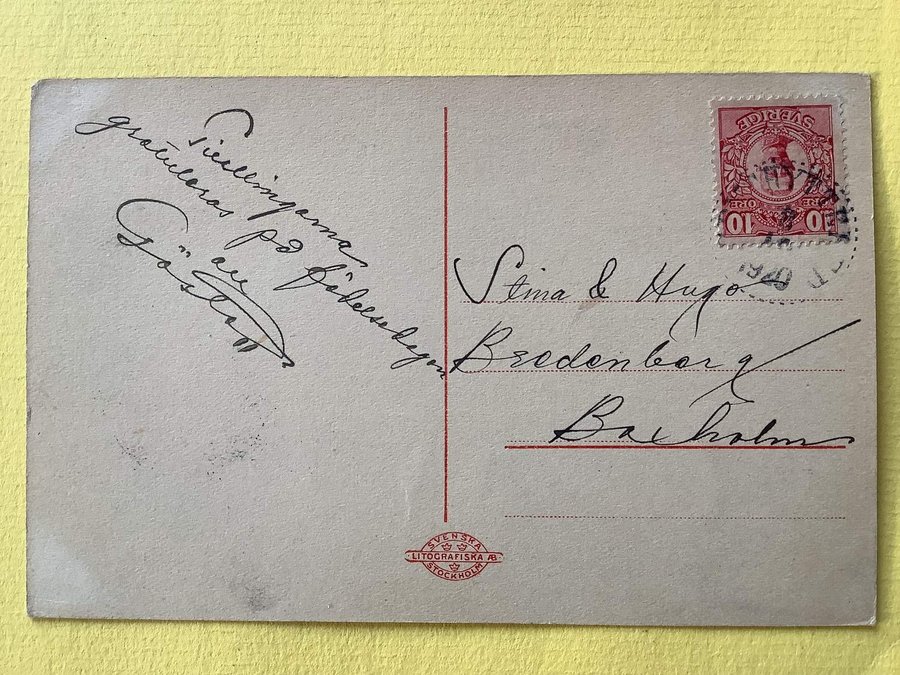 Tvillingarna
gratuleras på födelsedagen
av
Gösta
SVERIGE
10 ÖRE ÖRE 10
1920
Stina & Hugo
Bredenberg
Boxholm
SVENSKA
LITOGRAFISKA AB
STOCKHOLM